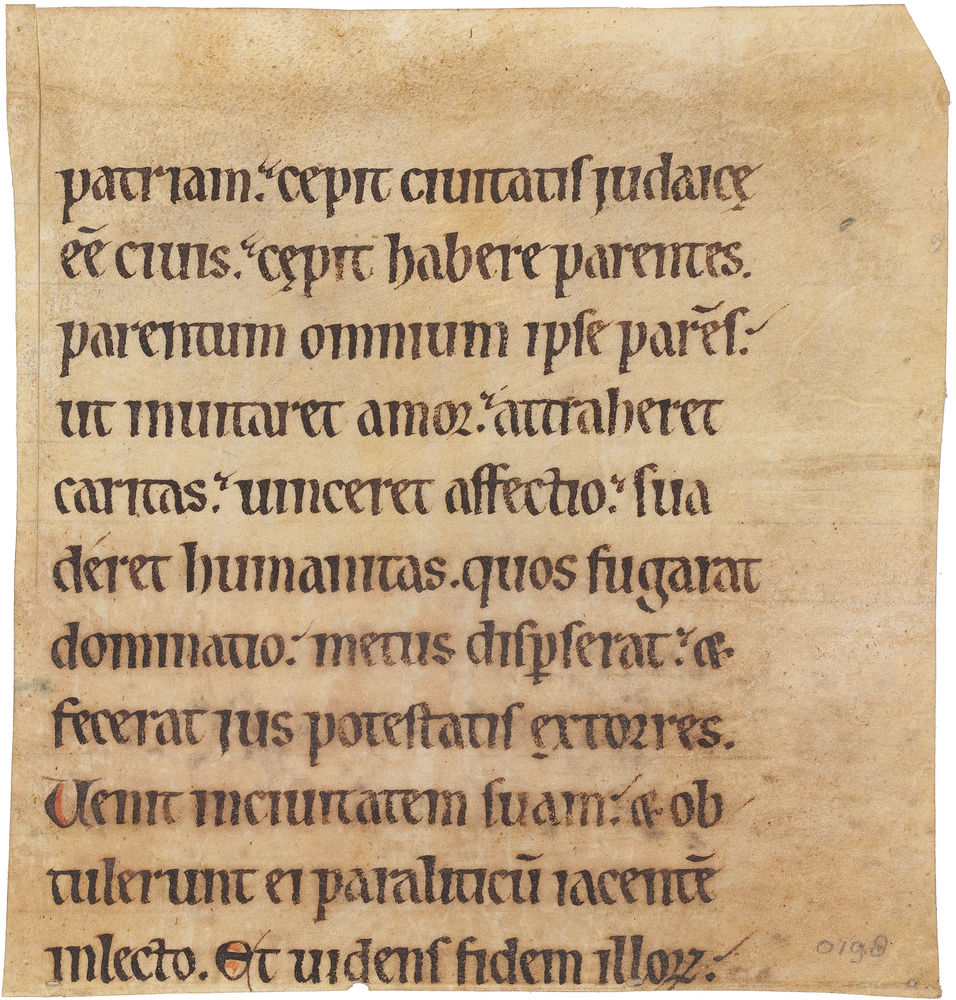 patriam. cepit ciuitatis judaicę
eē ciuis. cępit habere parentes.
parentum omnium ipse parēs.
ut inuitaret amor. attraheret
caritas. uinceret affectio. sua
deret humanitas. quos fugarat
dominatio. metus disꝑserat. &
fecerat jus potestatis ęxtorres.
Uenit inciuitatem suam. & ob
tulerunt ei paraliticū iacentē
inlecto. Et uidens fidem illoꝝ.
0198